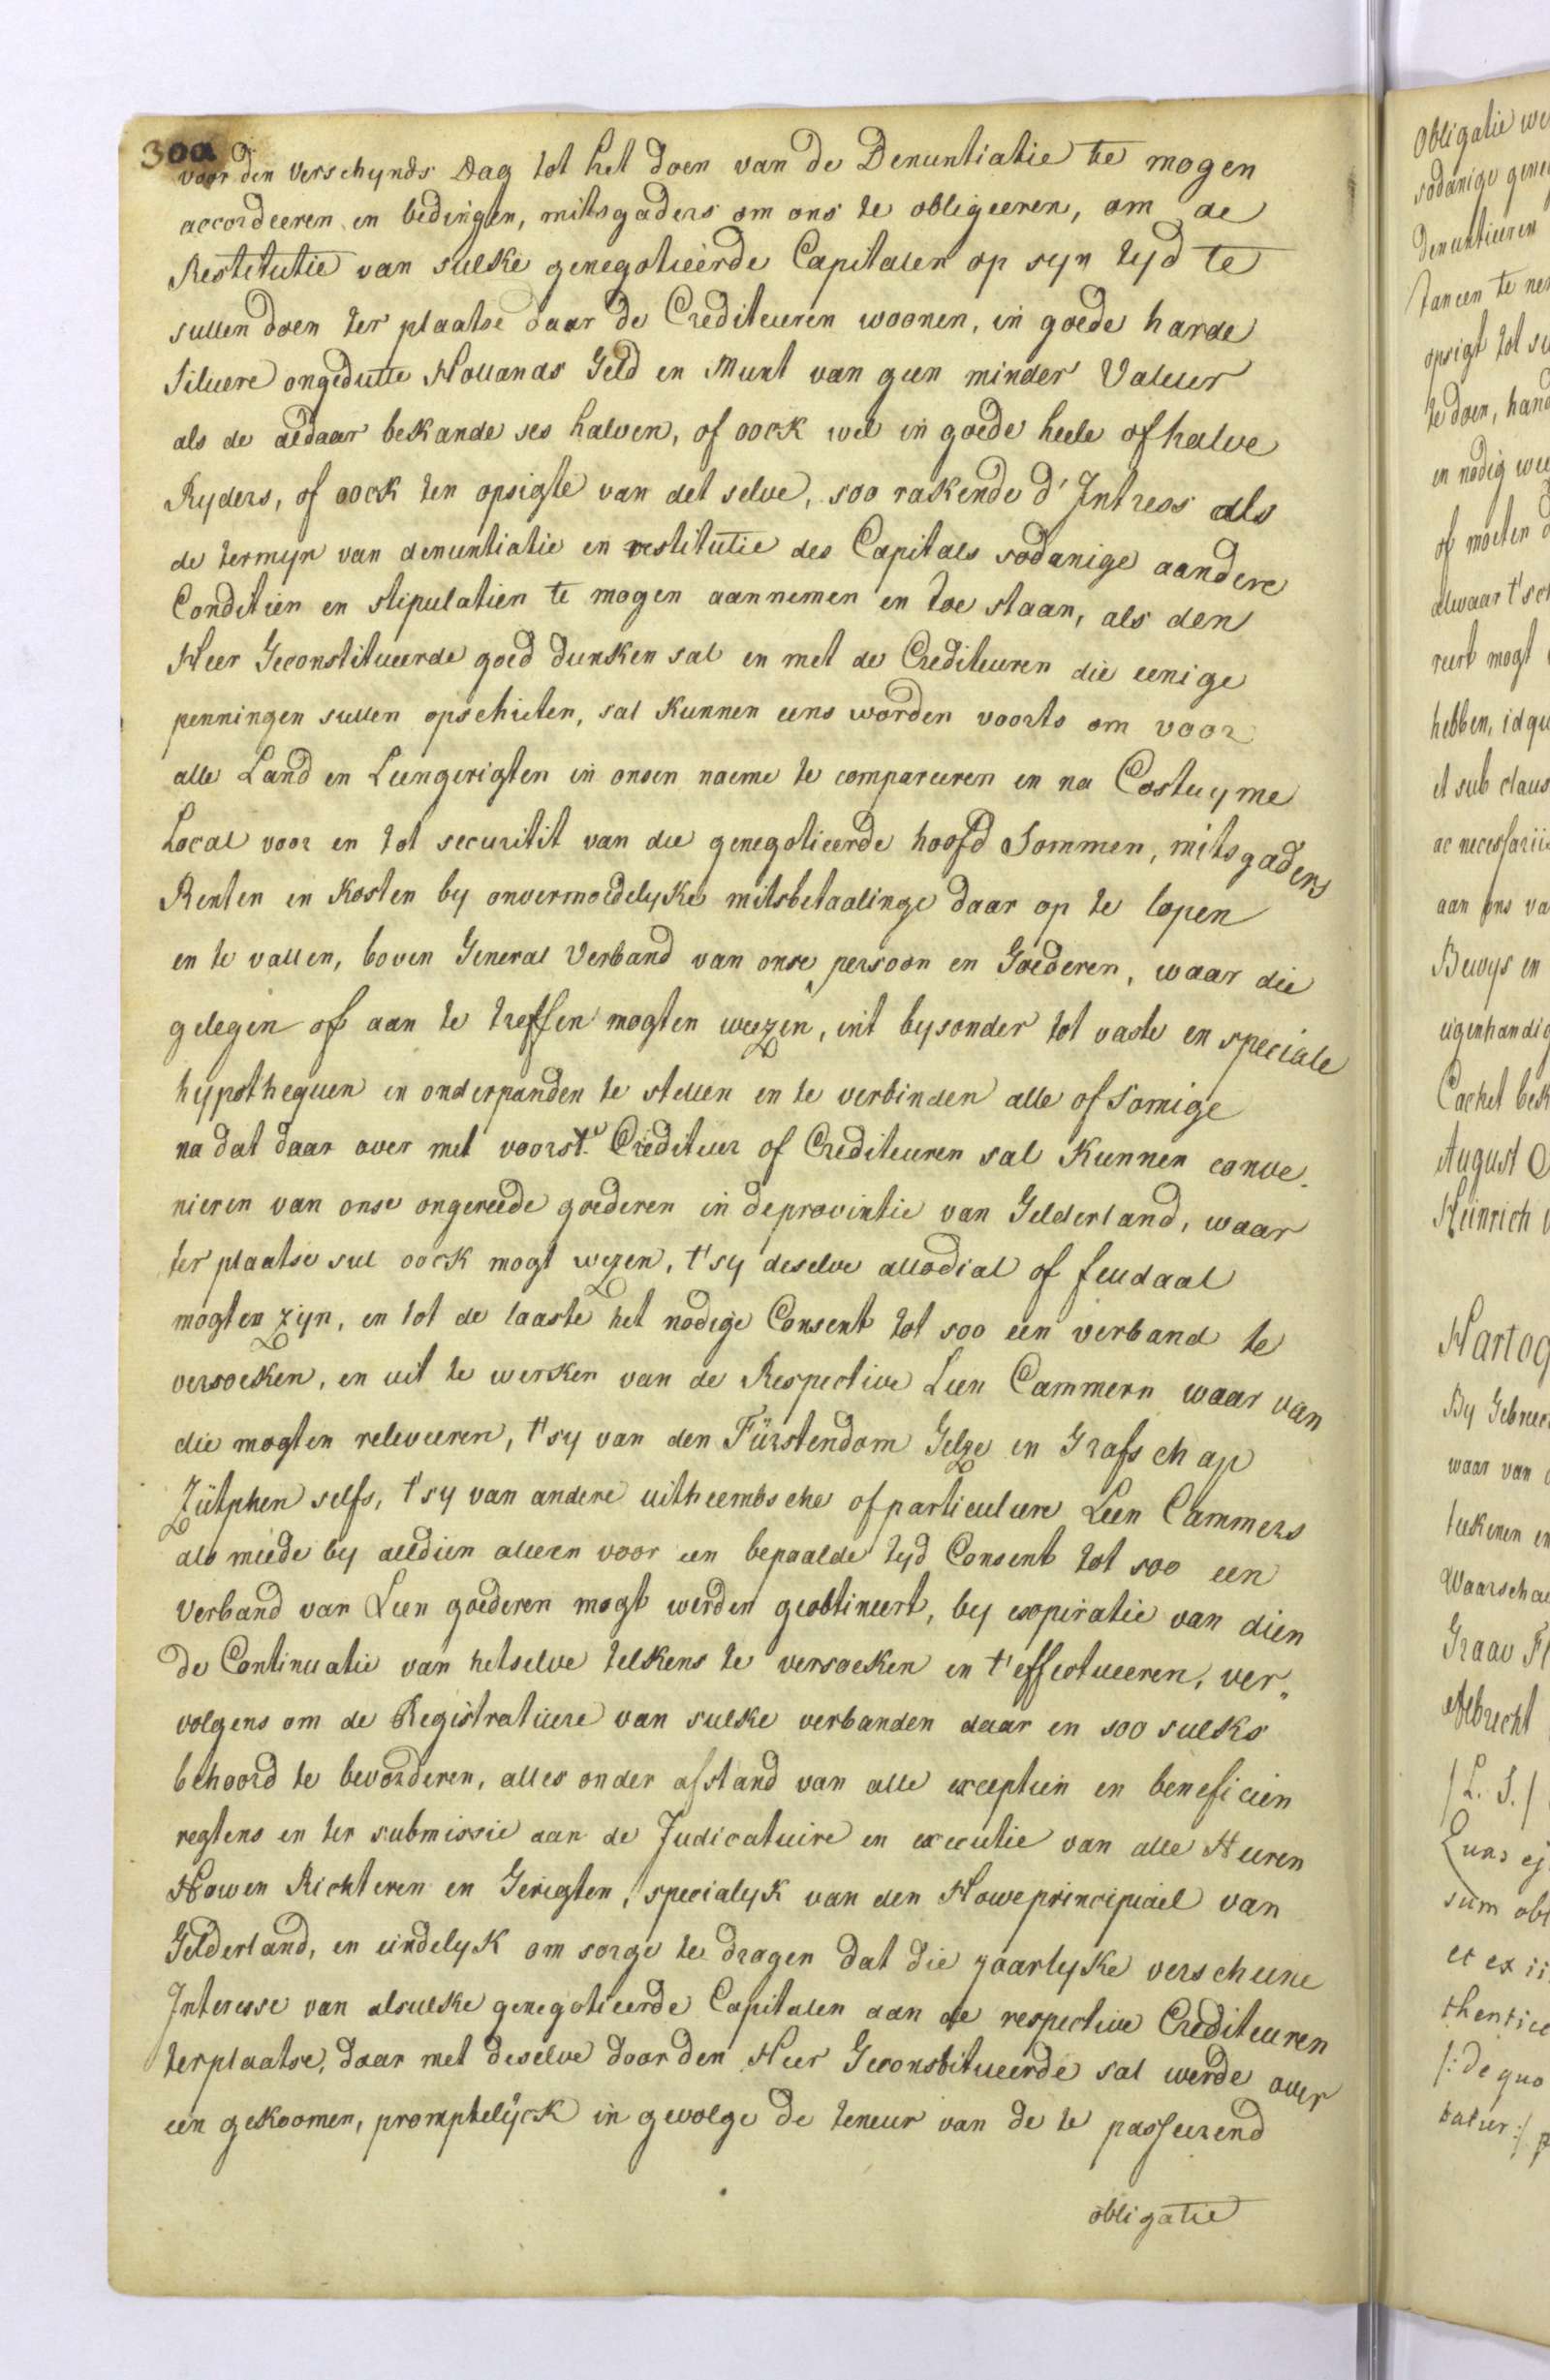 300
voor den verschynds Dag tot het doen van de Denuntiatie te mogen
accordeeren en bedingen, mitsgaders om ons te obligeeren, om de
Restitutie van sulke genegotieerde Capitalen op syn tyd te
sullen doen ter plaatse daar de Crediteuren woonen, in goede harde
silvere ongedutte Hollands Geld en Munt van geen minder Valeur
als de aldaar bekande ses halven, of oock wel in goede heele of halve
Ryders, of oock ten opsigte van det selve, soo rakende d' Intress als
de termyn van denuntiatie en restitutie des Capitals sodanige aandere
Conditien en stipulatien te mogen aannemen en toe staan, als den
Heer Geconstitueerde goed dunken sal en met de Crediteuren die eenige
penningen sullen opschieten, sal kunnen eens worden voorts om voor
alle Land en Leengerigten in onsen naeme te compareeren en na Costuyme
Local voor en tot securitit van die genegotieerde hoofd Sommen, mitsgaders
Renten en Kosten by onvermoedelyke mitsbetaalinge daar op te lopen
en te vallen, boven General Verband van onse persoon en Goederen, waar die
gelegen of aan te treffen mogten weezen, int bysonder tot vaste en speciale
hypothequen en onderpanden te stellen en te verbinden alle of somige
na dat daar over met voorst. Crediteur of Crediteuren sal kunnen conve-
nieren van onse ongereede goederen in de provintie van Gelderland, waar
ter plaatse sul oock mogt wezen, t'sy deselve allodial of feudaal
mogten zyn, en tot de laaste het nodige Consent tot soo een verband te
versoeken, en uit te werken van de Respective Leen Cammern waar van
die mogten releveeren, t'sy van den Fürstendom Gelze en Grafschap
Zütphen selfs, t'sy van andere uitheembsche of particuliere Leen Cammers
als meede by aldien alleen voor een bepaalde tyd Consent tot soo een
Verband van Leen goederen mogt werden geobtineert, by exspiratie van dien
de Continuatie van hetselve telkens te versoeken en t'effectueeren, ver-
volgens om de Registratuere van sulke verbanden daar en soo sulks
behoord te bevorderen, alles onder afstand van alle exceptien en beneficien
regtens en ter submissie aan de Judicatuire en executie van alle Heeren
Howen Richteren en Gerigten, specialyk van den Howe principiael van
Gelderland, en eindelyk om sorge te dragen dat die jaarlyke verscheine
Interesse van alsulke genegotieerde Capitalen aan de respective Crediteuren
terplaatse, daar met deselve door den Heer Geconstitueerde sal werde over
een gekoomen, promptelyck in gevolge de teneur van de te passeerend
obligatie
Obligatie we
sodanige gene
Denuntieeren
tancen te ne
opsigt tot su
te doen, hand
en nodig we
of moeten d
alwaar t'sch
reert mogt
hebben, id qu
et sub claus
ac necessariis
aan ons va
Bewys en
eigenhandig
Cachet bek
August
Heinrich
Hartog
By Gebreec
waar van
teekenen en
Waarschau
Graav Fl
Albrecht
/L. S./
Quas ej
sum obl
et ex ii
thentice
/: de quo
batur :/ p